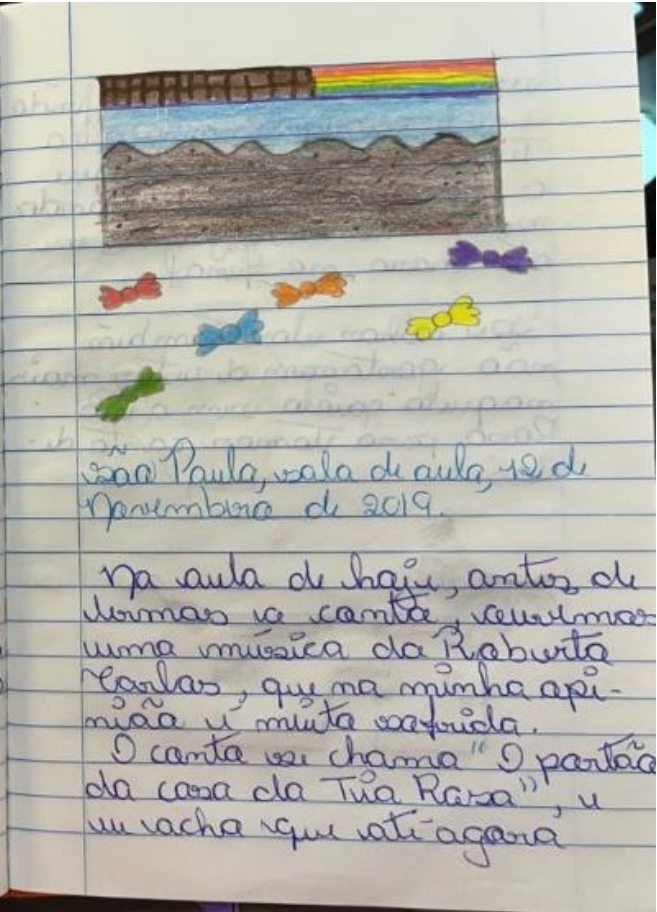 São Paulo, sala de aula, 12 de
Novembro de 2019.
Na aula de hoje, antes de
lermos o conto, ouvimos
uma música do Roberto
Carlos, que na minha opi-
nião é muito sofrida.
O conto se chama "O portão
da casa da Tia Rosa", e
eu acho que até agora